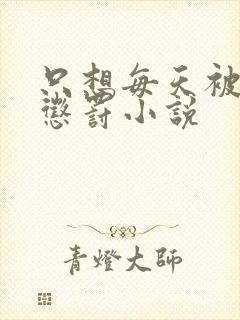 只想每天被
懲罰小説
青燈大師